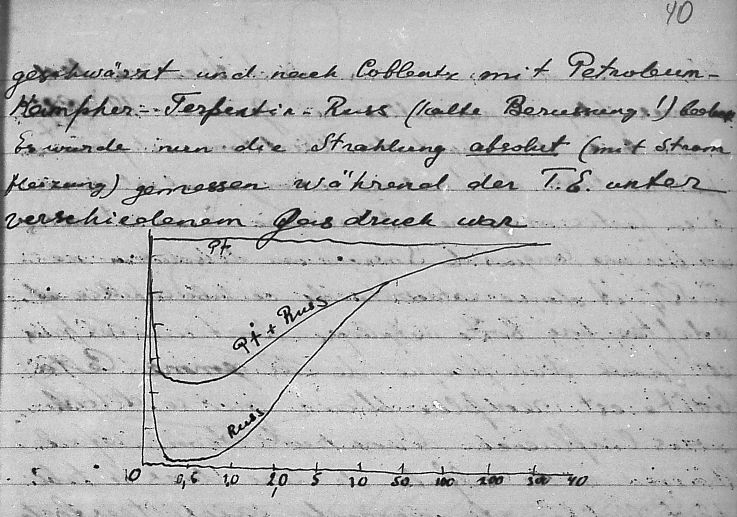 40
geschwärzt und nach Coblentz mit Petroleum-
Kampher-Terpentin-Russ (kalte Berussung!)
Es wurde nun die Strahlung absolut (mit Strom
Heizung) gemessen während der T.E. unter
verschiedenem Gasdruck war
Pt.
Pt + Russ
Russ
0 0,5 1,0 2,0 5 10 50 100 200 300 40